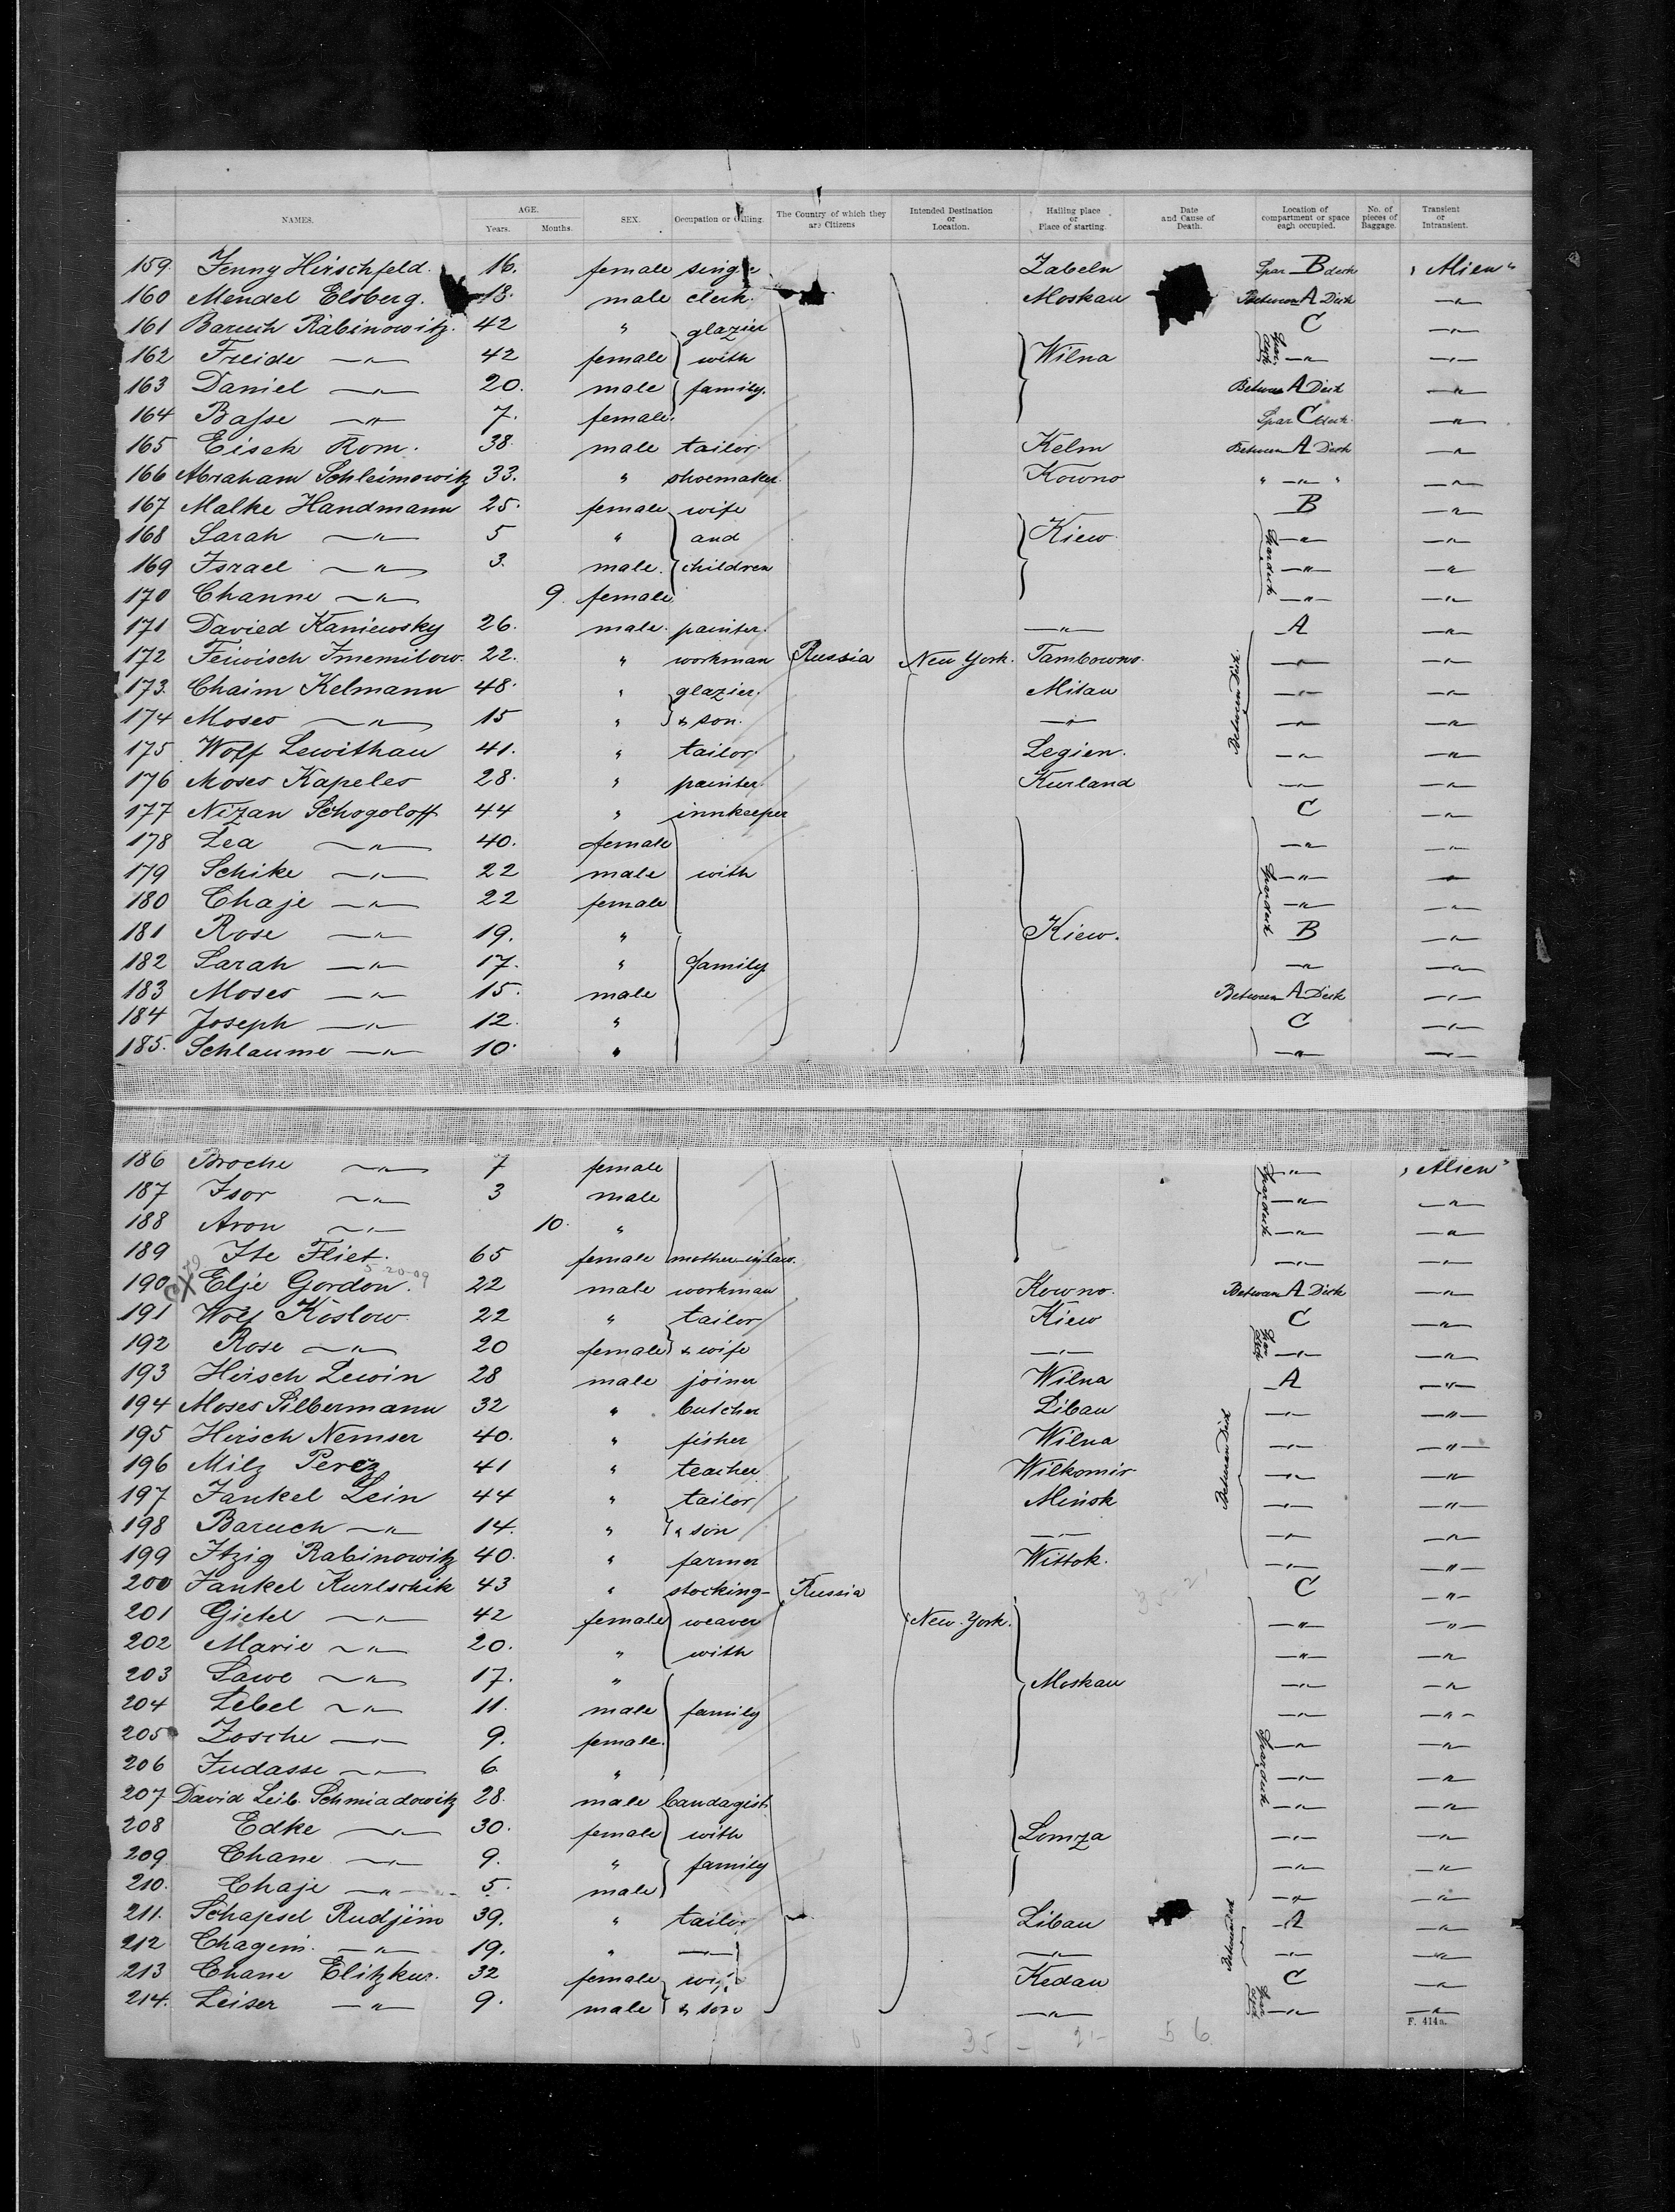 NAMES. AGE. SEX. Occupation or Calling. The Country of which they are Citizens Intended Destination or Location. Hailing place or Place of starting. Date and Cause of Death. Location of compartment or space each occupied. No. of pieces of Baggage. Transient or Intransient.
Years. Months.
159. Jenny Hirschfeld. 16. female single Zabeln Spar B deck "Alien"
160 Mendel Elsberg. 18. male clerk. Moskau Between A Deck —"—
161 Baruch Rabinowitz. 42 " glazier C —"—
162 Freide —"— 42 female with Wilna Spar deck —"— —"—
163 Daniel —"— 20. male family. Between A Deck —"—
164 Basse —"— 7. female. Spar C deck. —"—
165 Eisek Rom. 38 male tailor Kelm Between A Deck —"—
166 Abraham Schleimowitz 33. " shoemaker Kowno " —"— " —"—
167 Malke Handmann 25. female wife B —"—
168 Sarah —"— 5 " and Kiew Spardeck —"— —"—
169 Israel —"— 3. male. children —"— —"—
170 Channe —"— 9. female —"— —"—
171 Davied Kaniewsky 26. male. painter. —"— A —"—
172 Feiwisch Imemilow. 22. " workman Russia New York. Tambowno. Between Deck —"— —"—
173. Chaim Kelmann 48. " glazier. Mitau —"— —"—
174 Moses —"— 15 " & son. —"— —"— —"—
175 Wolf Lewithau 41. " tailor Legien. —"— —"—
176 Moses Kapeles 28. " painter. Kurland —"— —"—
177 Nizan Schogoloff 44 " innkeeper C —"—
178 Lea —"— 40. female —"— —"—
179 Schike —"— 22 male with Spardeck —"— —"—
180 Chaje —"— 22 female —"— —"—
181 Rose —"— 19. " Kiew. B —"—
182 Sarah —"— 17. " family —"— —"—
183 Moses —"— 15. male Between A Deck —"—
184 Joseph —"— 12. " C —"—
185. Schlaume —"— 10. " —"— —"—
186 Broche —"— 7 female —"— "Alien"
187 Isor —"— 3 male Spardeck —"— —"—
188 Aron —"— 10. " —"— —"—
189 Ite Fliet. 65 female mother-in-law. —"— —"—
5-20-09
190 X Elje Gordon. 22 male workman Kowno. Between A Deck —"—
191 Wolf Koslow 22 " tailor Kiew C —"—
192 Rose —"— 20 female & wife —"— Spar deck —"— —"—
193 Hirsch Lewin 28 male joiner Wilna A —"—
194 Moses Silbermann 32 " butcher Libau —"— —"—
195 Hirsch Nemser 40. " fisher Wilna Between Deck —"— —"—
196 Milz Perez 41 " teacher Wilkomir —"— —"—
197 Jankel Lein 44 " tailor Minsk —"— —"—
198 Baruch —"— 14. " & son —"— —"— —"—
199 Itzig Rabinowitz 40. " farmer Wittok. —"— —"—
200 Jankel Kurlschik 43 " stocking- Russia C —"—
201 Gietel —"— 42 female weaver New York. —"— —"—
202 Marie —"— 20. " with —"— —"—
203 Sawe —"— 17. " Moskau —"— —"—
204 Lebel —"— 11. male family —"— —"—
205 Zosche —"— 9. female. —"— —"—
206 Judasse —"— 6 " Spardeck —"— —"—
207 David Leib Schmiadowitz 28. male bandagist —"— —"—
208 Edke —"— 30. female with Lomza —"— —"—
209 Chane —"— 9. " family —"— —"—
210. Chaje —"— 5. male —"— —"—
211. Schapsel Rudjim 39. " tailor Libau Between deck A —"—
212 Chagem. —"— 19. " —"— —"— —"— —"—
213 Chane Elitzkur. 32 female wife Kedau C —"—
214. Leiser —"— 9. male & son —"— Spar deck —"— —"—
F. 414a.
35 - 21- 56